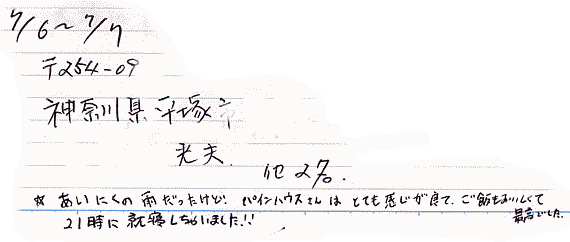 7/6～7/7
〒254-09
神奈川県平塚市
光夫. 他2名.
☆ あいにくの雨だったけど! パインハウスさんは とても感じが良て、ご飯もおいしくて
21時に就寝しちゃいました!! 最高でした。